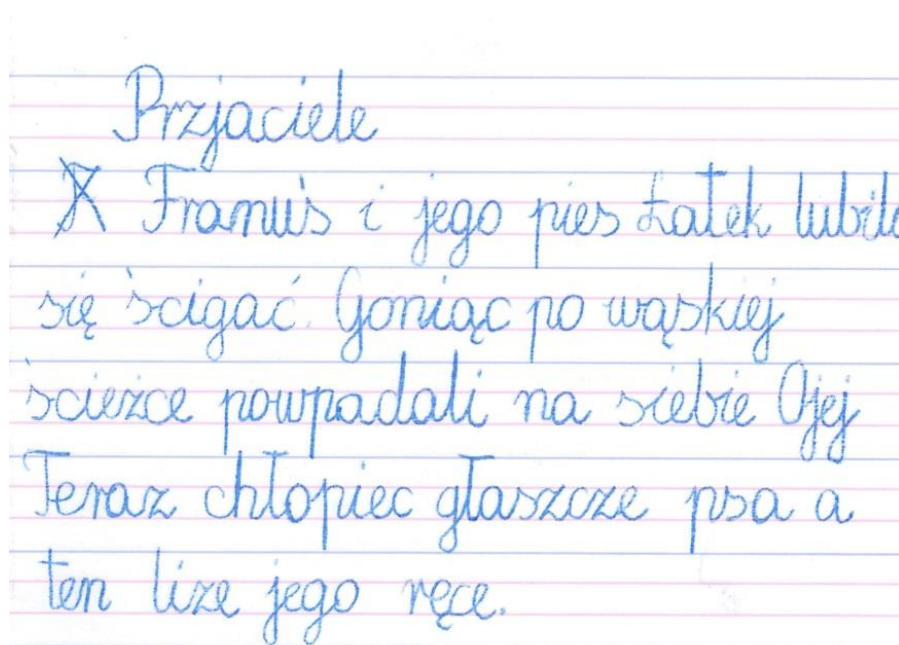 Przjaciele
Franuś i jego pies Łatek
się ścigać. Goniąc po wąskiej
ścieżce powpadali na siebie Ojej
Teraz chłopiec głaszcze psa a
ten liże jego ręce.